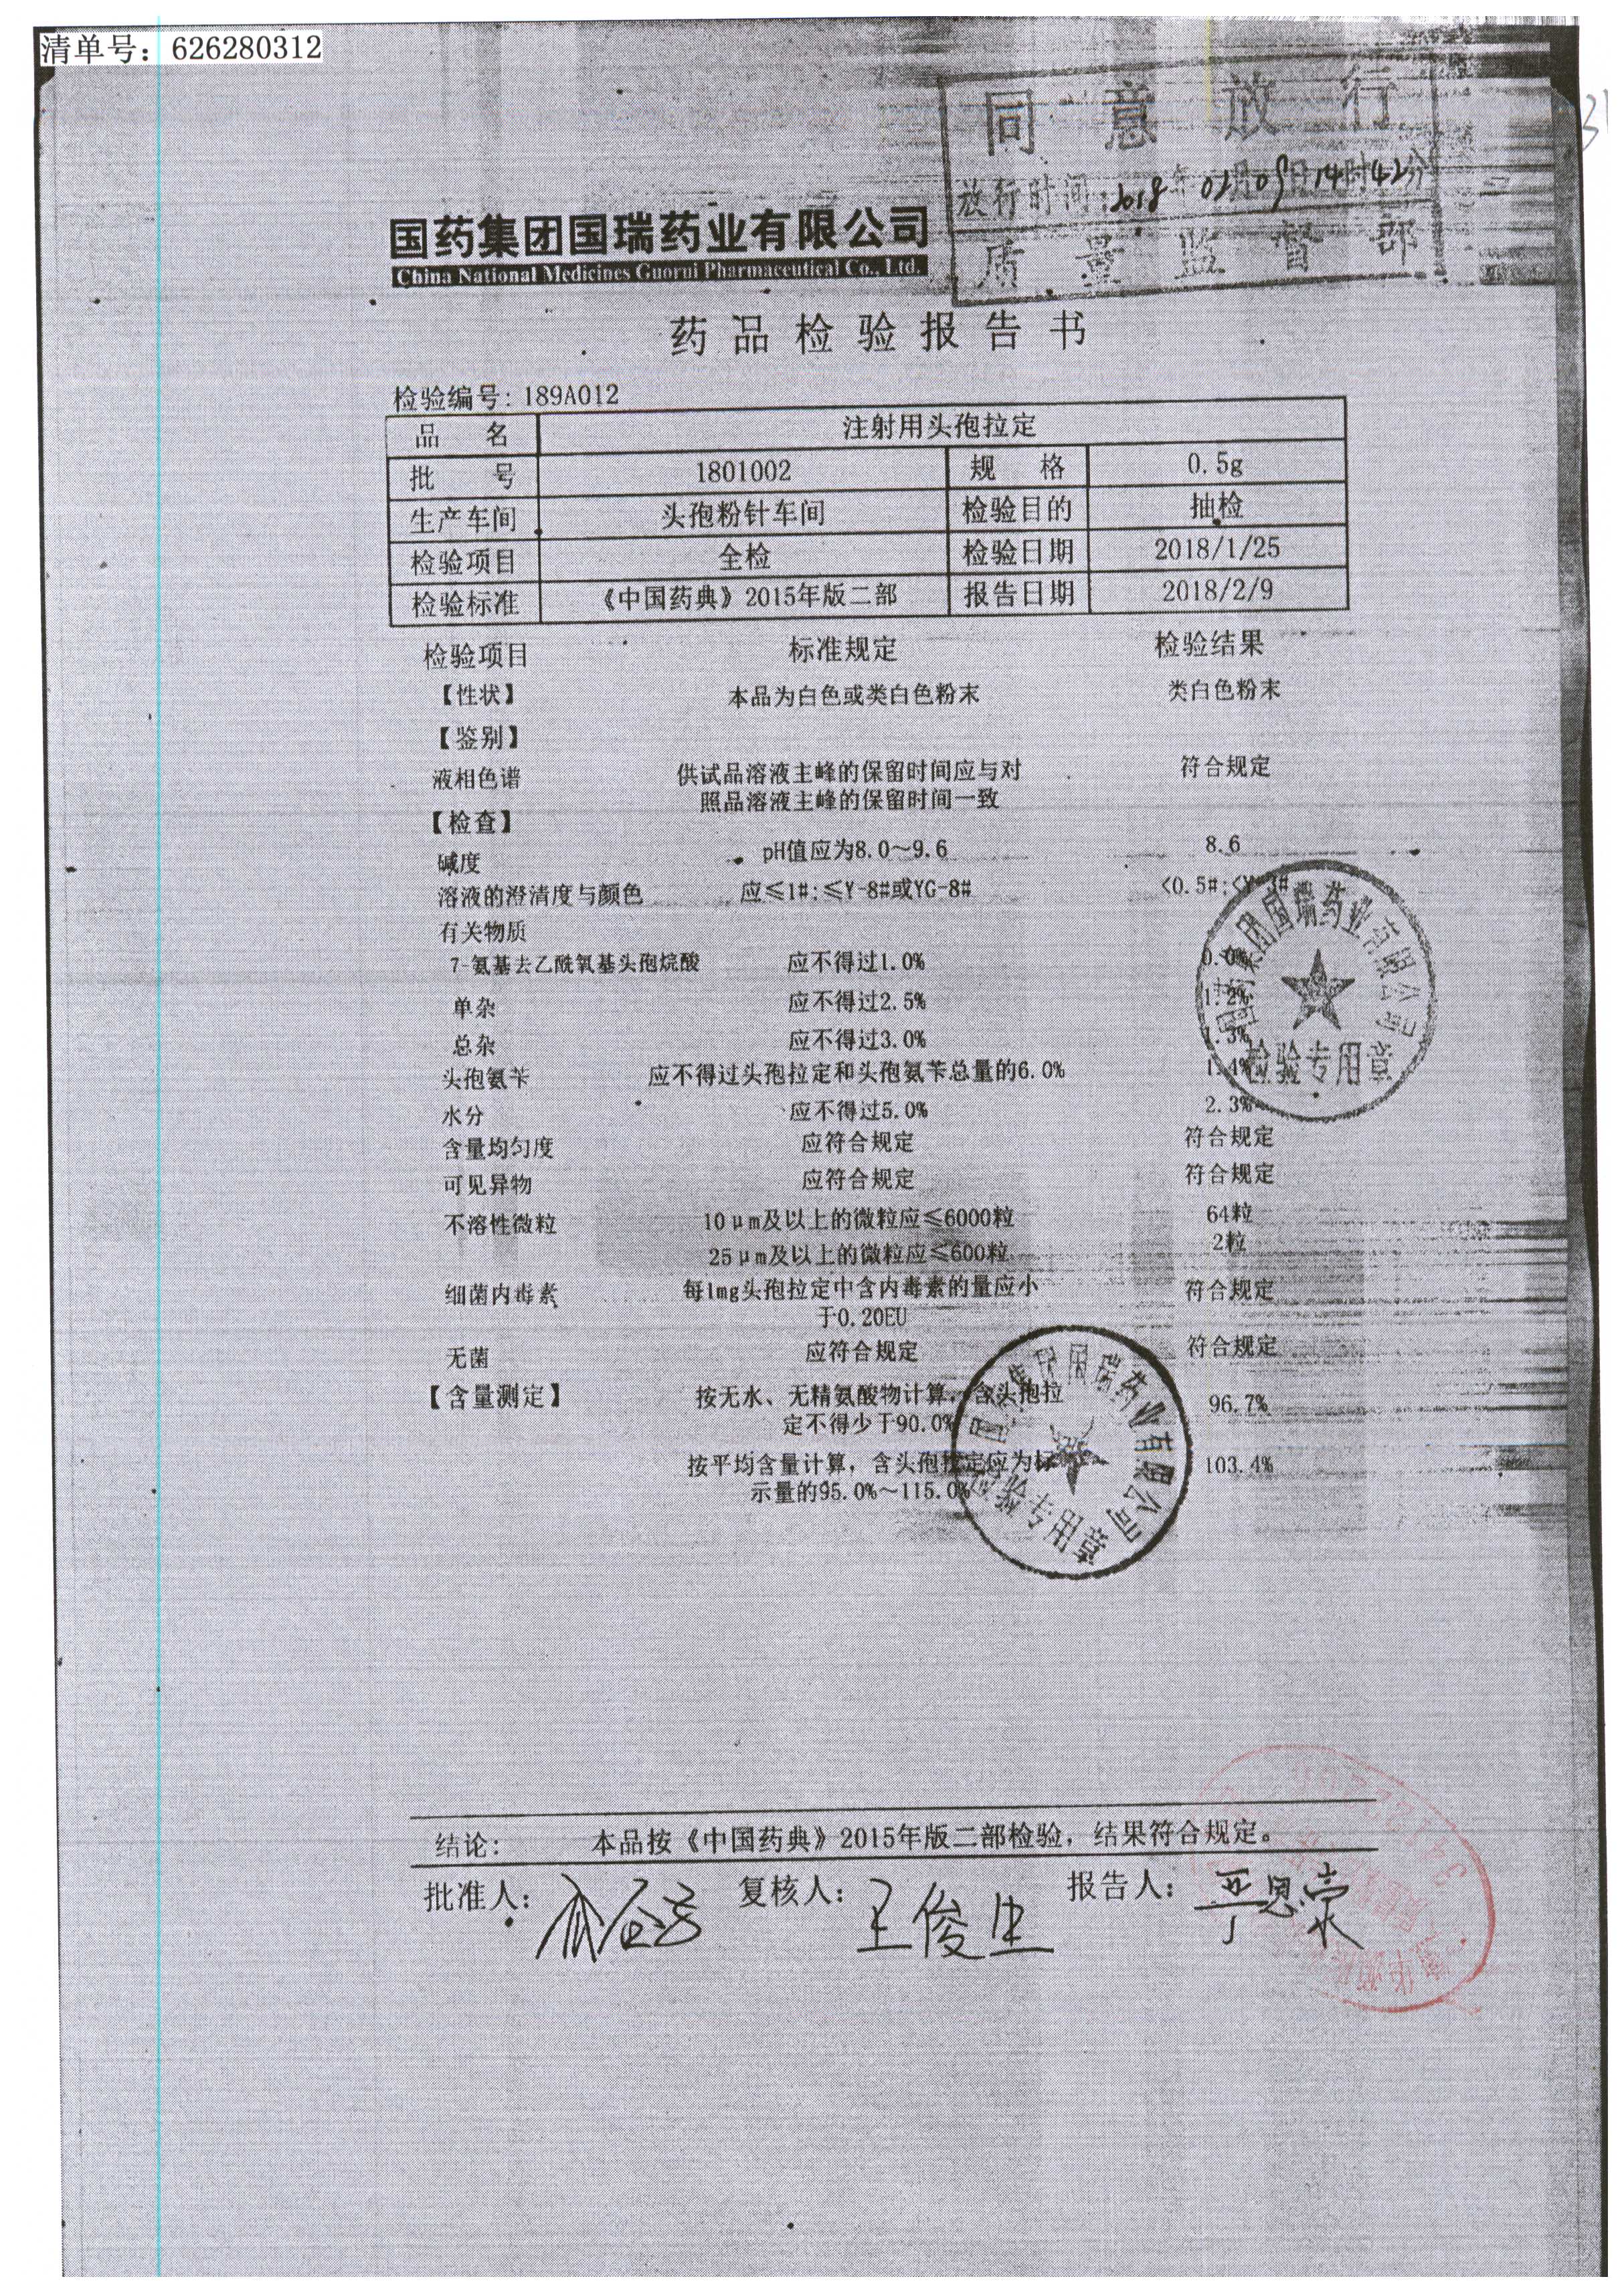 清单号：626280312
同意放行
放行时间：2018年02月09日14时42分
质量监督部
国药集团国瑞药业有限公司
China National Medicines Guorui Pharmaceutical Co., Ltd.
药品检验报告书
检验编号：189A012
品 名 注射用头孢拉定
批 号 1801002 规 格 0.5g
生产车间 头孢粉针车间 检验目的 抽检
检验项目 全检 检验日期 2018/1/25
检验标准 《中国药典》2015年版二部 报告日期 2018/2/9
检验项目 标准规定 检验结果
【性状】 本品为白色或类白色粉末 类白色粉末
【鉴别】
液相色谱 供试品溶液主峰的保留时间应与对 符合规定
照品溶液主峰的保留时间一致
【检查】
碱度 pH值应为8.0～9.6 8.6
溶液的澄清度与颜色 应≤1#；≤Y-8#或YG-8# <0.5#;<Y-3#
有关物质
7-氨基去乙酰氧基头孢烷酸 应不得过1.0% 0.0%
单杂 应不得过2.5% 1.2%
总杂 应不得过3.0% 1.3%
头孢氨苄 应不得过头孢拉定和头孢氨苄总量的6.0% 1.4%
水分 应不得过5.0% 2.3%
含量均匀度 应符合规定 符合规定
可见异物 应符合规定 符合规定
不溶性微粒 10μm及以上的微粒应≤6000粒 64粒
25μm及以上的微粒应≤600粒 2粒
细菌内毒素 每1mg头孢拉定中含内毒素的量应小 符合规定
于0.20EU
无菌 应符合规定 符合规定
【含量测定】 按无水、无精氨酸物计算，含头孢拉 96.7%
定不得少于90.0%
按平均含量计算，含头孢拉定应为标 103.4%
示量的95.0%～115.0%
国药集团国瑞药业有限公司
检验专用章
国药集团国瑞药业有限公司
检验专用章
结论： 本品按《中国药典》2015年版二部检验，结果符合规定。
批准人： 复核人：王俊生 报告人：严思蒙